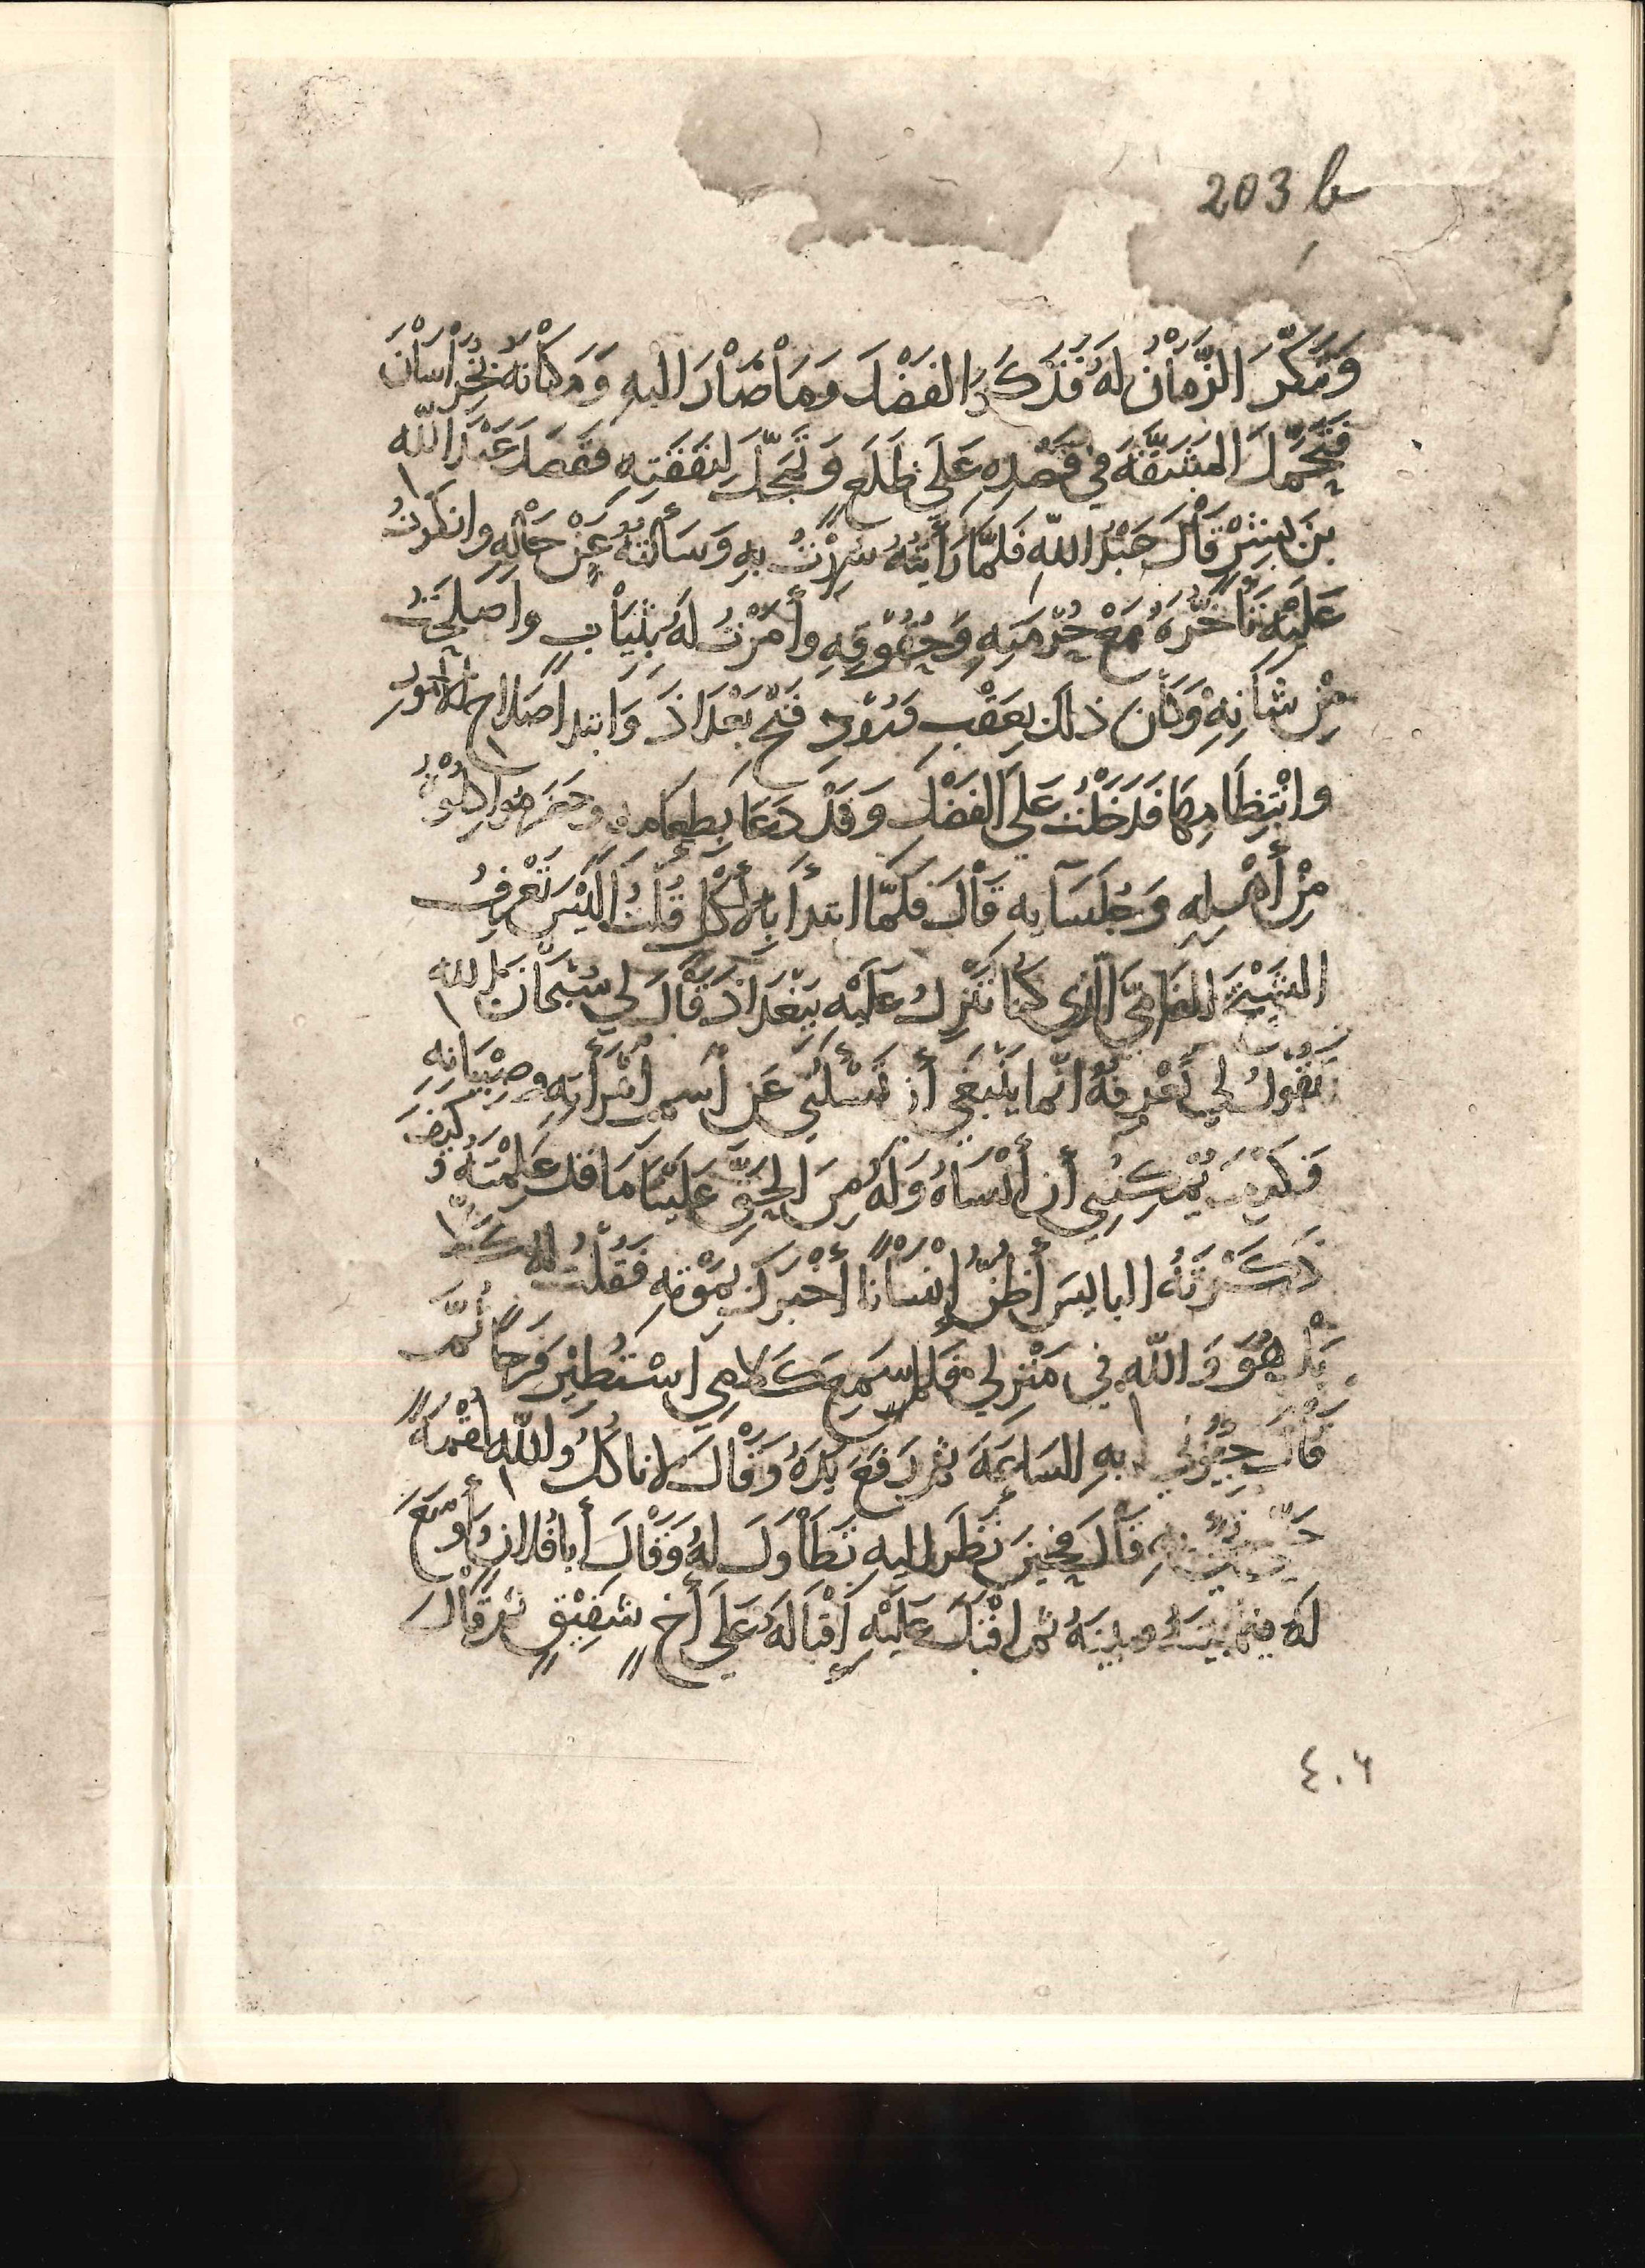 203 b
وَتَنَكَّرَ الزَّمَانُ لَهُ فَذَكَرَ الفَضْلَ وَمَا صَارَ اليهِ وَمَكَانَهُ بِخُرَاسَانَ
فَتَحَمَّلَ المَشَقَّةَ فِي قَصْدِهِ عَلَى ظَلَعٍ وَتَمَحَّلَ لِنَفَقَتِهِ فَقَصَدَ عَبْدَ اللّه
بنَ بِشْرٍ قَالَ عَبْدُ اللّهِ فَلَمَّا رَأَيْتُهُ سُرِرْتُ بِهِ وَسَأَلْتُهُ عَنْ حَالِهِ وانكَرْتُ
عَلَيْهِ تَأَخُّرَهُ مَعْ حُرْمَتِهِ وَحُقُوقِهِ وأَمَرْتُ لَهُ بِثِيَابٍ واَصْلَحْتُ
مِنْ شَانِهِ وَكَانَ ذلك بِعَقْبِ فَتْحِ بَغْدَاذَ وَابتدا صَلاحِ الأمُورِ
وانْتِظَامِهَا فَدَخَلْتُ عَلَى الفَضْلِ وَقَدْ دَعَا بِطَعَامِهِ وحَضَرَ مُوَاكِلُوهُ
مِنْ أَهْلِهِ وَجُلَسَآيِهِ قَالَ فَلَمَّا ابتدأَ بِالأَكْلِ قُلْتُ أَلَيْسَ تَعْرِفُ
الشَيْخَ الفَامِيَّ الَّذِي كُنَا نَنْزِلُ عَلَيْهِ بِبَغْدَاذَ فَقَالَ لِي سُبْحَانَ اللهِ
تَقُولُ لِي تَعْرِفُهُ انَّما يَنْبَغي أَن تَسْلَنِي عَنِ اسمِ امْرَأَتِهِ وصِبْيَانِهِ
فَكَيْفَ يُمْكِنُنِي أَن أَنْسَاهُ وَلَهُ مِنَ الحَقِّ عَلَيْنَا مَا قَد عَلِمْتَهُ وَكَيْفَ
ذَكَرْتَهُ البايسَ أَظُنُّ إِنْسَانًا أَخْبَرَكَ بِمَوْتِهِ فَقُلْتُ لهُ كَلّا
بَلْ هُوَ وَاللّهِ فِي مَنْزِلِي فَلَمَّا سَمِعَ كَلامِي اسْتُطِيْرَ فَرَحًا ثُمَّ
قَالَ جِيُونِي بِهِ السَاعَةَ ثم رَفَعَ يَدَهُ وَقَالَ لا نَاكُلُ وَاللّهِ لُقْمَةً
حَتَّى قَالَ فَحِينَ نَظَرَ اليهِ تَطَاوَلَ لهُ وَقَالَ أَبا فُلانٍ وَأَوْسَعَ
لَهُ فيما بَيْنَهُ وبينَهُ ثم اقْبَلَ عَلَيْهِ إِقْبَالَهُ عَلَى أَخٍ شَفِيْقٍ ثم قَالَ
٤٠٦